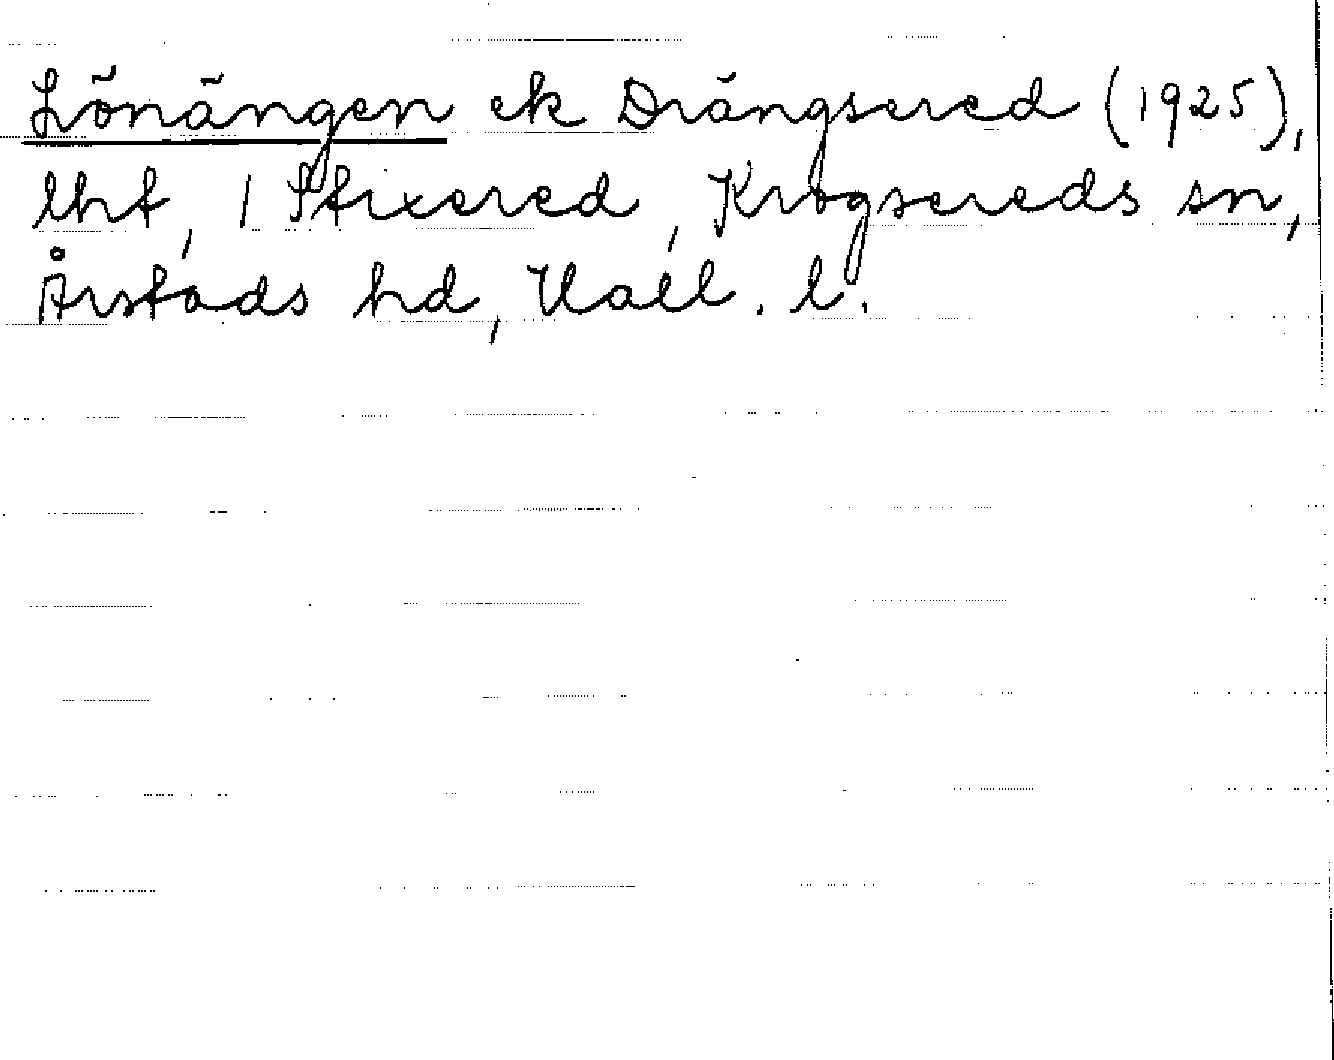 Lönängen ek Drängsered (1925),
lht, 1 Stixered, Krogsereds sn,
Årstads hd, Hall. l.